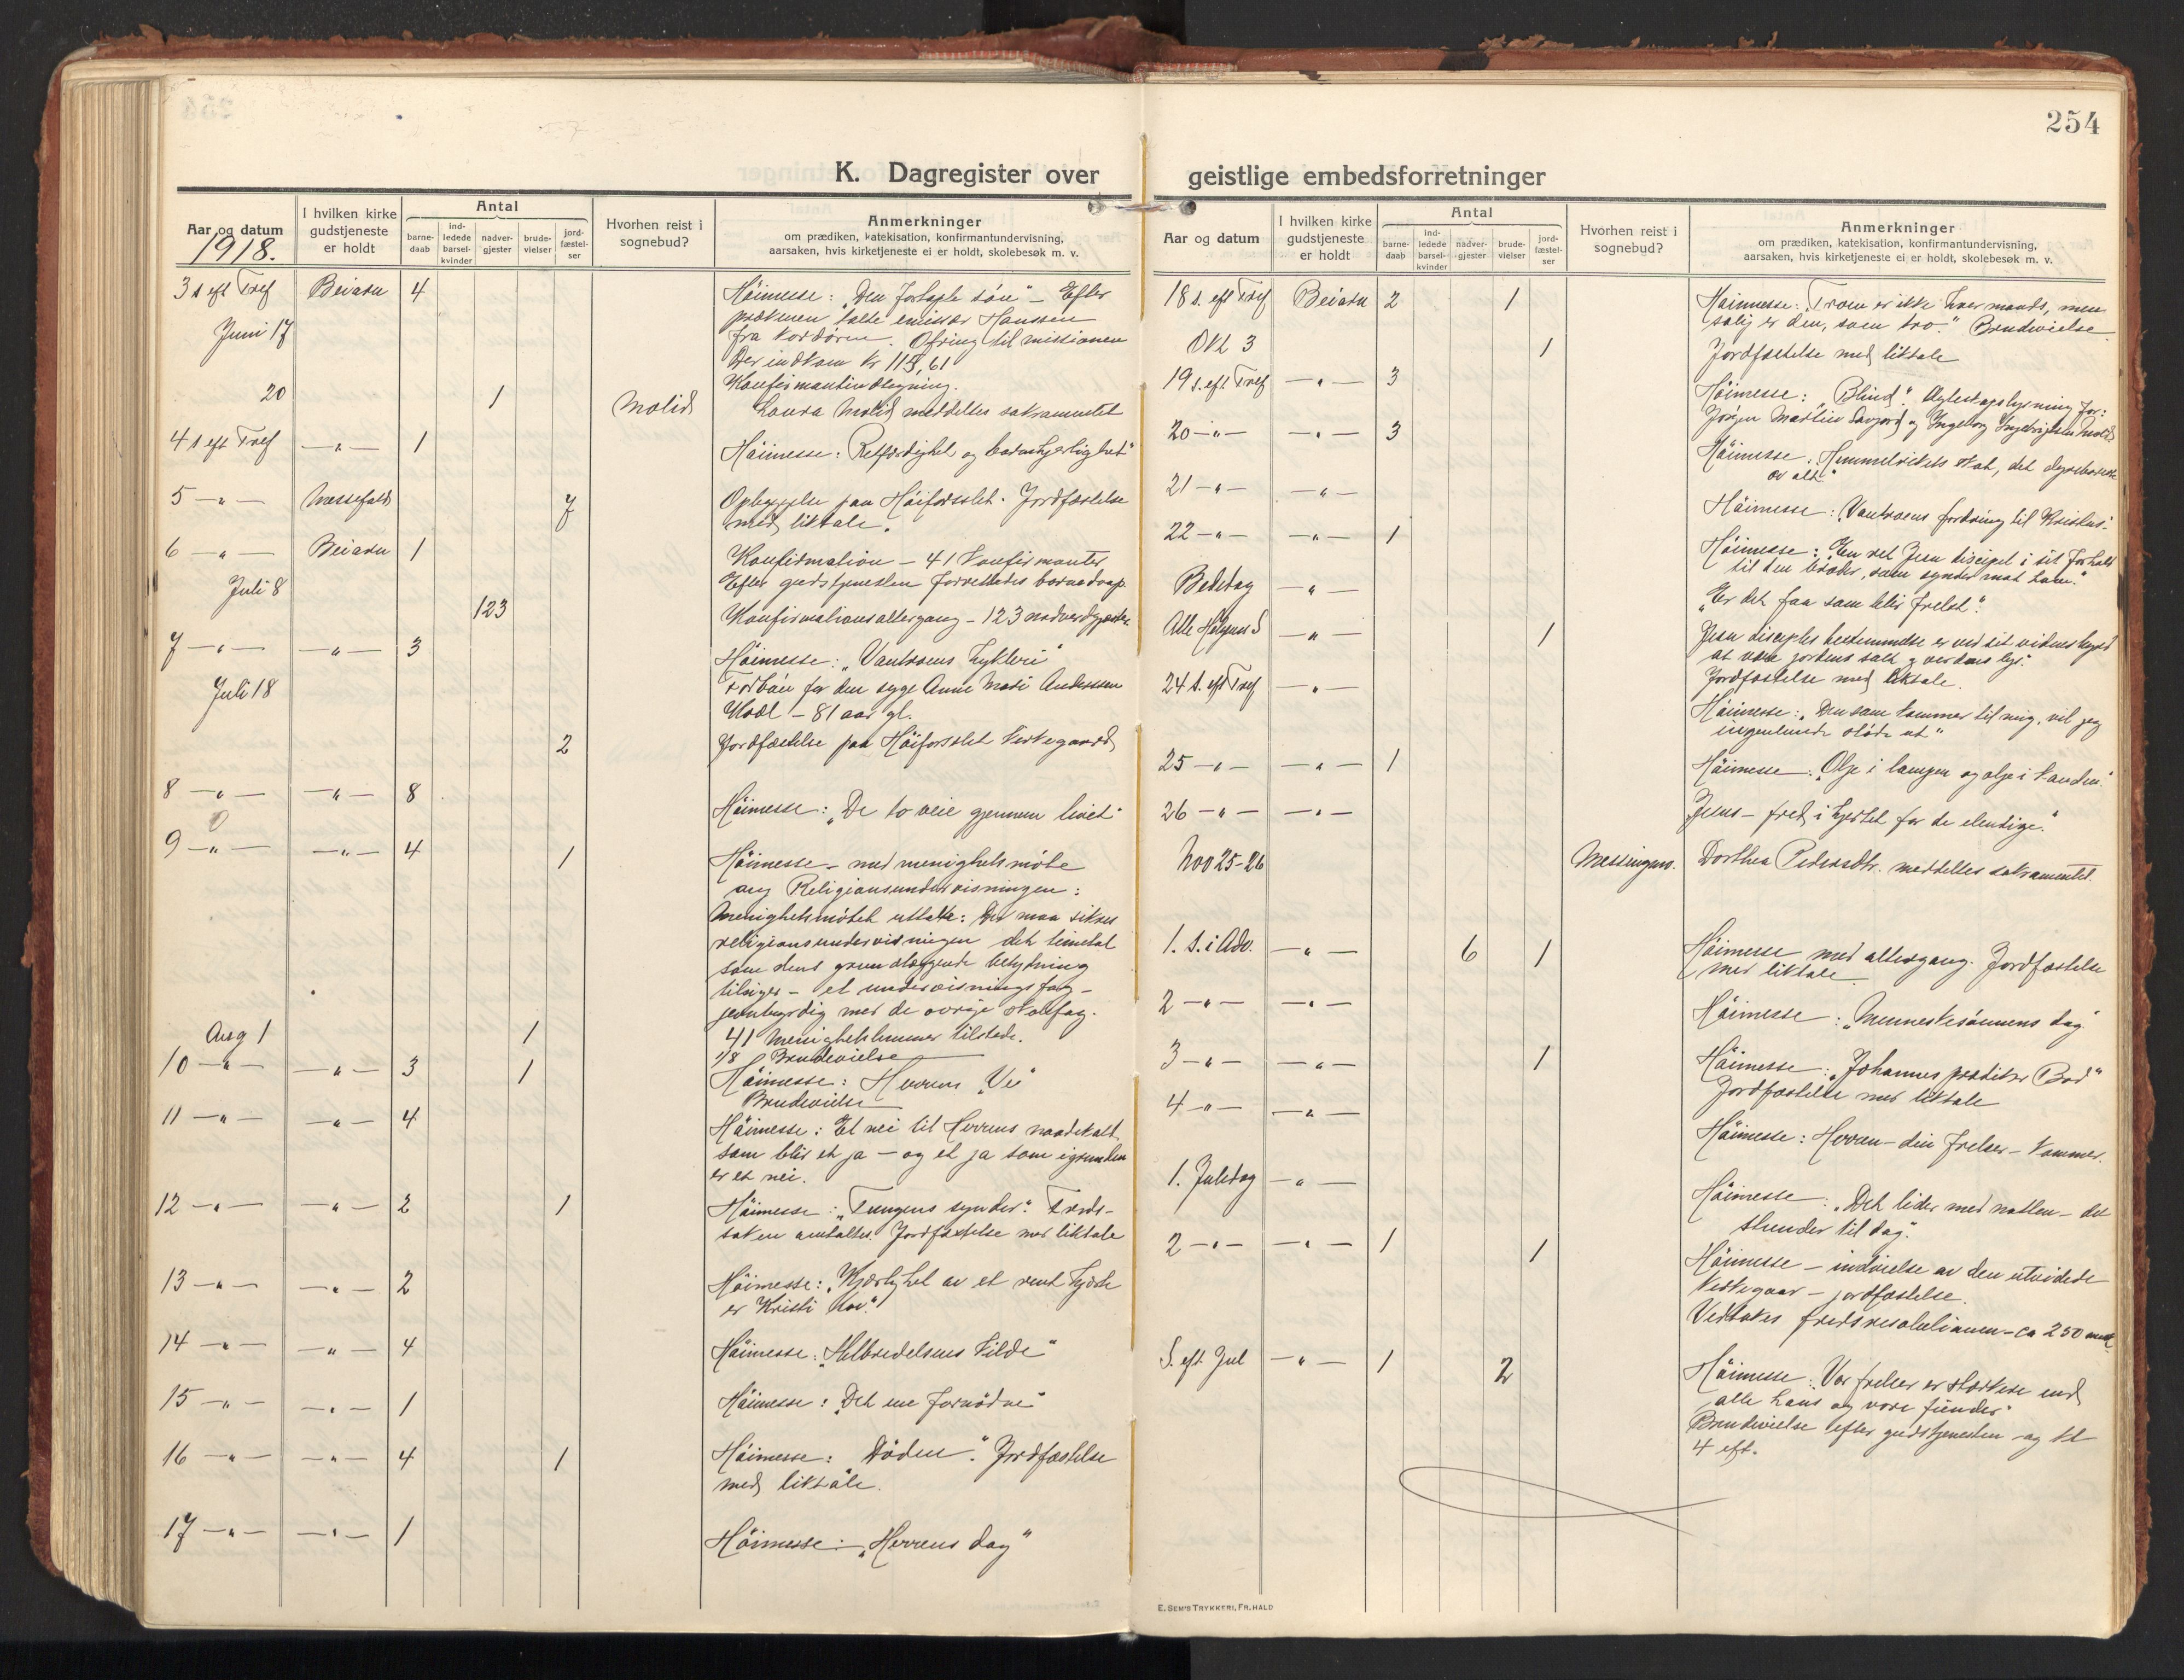 254
K. Dagregister over geistlige embedsforretninger
Aar og datum
1918.
I hvilken kirke gudstjeneste er holdt
Antal
barne-daab
ind-ledede barsel-kvinder
nadver-gjester
brude-vielser
jord-fæstel-ser
Hvorhen reist i sognebud?
Anmerkninger
om prædiken, katekisation, konfirmantundervisning,
aarsaken, hvis kirketjeneste ei er holdt, skolebesøk m. v.
3 s eft Tref Beiarn 4 Höimesse: "Den fortapte sön" – Efter
prækenen talte emissær Hanssen
Juni 17 fra Ofring til missionen
Der indkom kr 115,61
Konfirmantindtegning.
20 1 Molid Laura Molid meddeltes sakramentet
4 s eft Tref —"— 1 Höimesse: Retfærdighet og barmhjertighet"
5 —"— Næssefald 7 Opbyggelse paa Höiforsslet. Jordfæstelse
med liktale.
6 —"— Beiarn 1 Konfirmation – 41 konfirmanter
Efter gudstjenesten forrettedes barnedaap
Juli 8 123 Konfirmationsaltergang – 123 nadverdgjester
7 —"— —"— 3 Höimesse: "Vantroens hykleri"
Juli 18 Forbön for den syge Anne Marie Anderssen
– 81 aar gl.
2 Jordfæstelse paa Höiforsslet kirkegaard
8 —"— —"— 8 Höimesse: "De to veie gjennem livet"
9 —"— —"— 4 1 Höimesse – med menighetsmöte
ang Religionsundervisningen:
Menighetsmötet uttalte: Der maa sikres
religionsundervisningen det timetal
som dens grundlæggende betydning
tilsiger – et undervisningsfag –
jevnbyrdig med de övrige skolefag.
41 menighetslemmer tilstede.
Aug 1 1 1/8 Brudevielse
10 —"— —"— 3 1 Höimesse: Herrens "Ve"
Brudevielse
11 —"— —"— 4 Höimesse: Et nei til Herrens naadekald
som blir et ja – og et ja som i grunden
er et nei.
12 —"— —"— 2 1 Höimesse: "Tungens synder". Freds-
saken omtaltes. Jordfæstelse med liktale
13 —"— —"— 2 Höimesse: "Kjærlighet av et rent hjerte
er Kristi lov."
14 —"— —"— 4 Höimesse: "Helbredelsens kilde"
15 —"— —"— 1 Höimesse: "Det ene fornödne"
16 —"— —"— 4 1 Höimesse: "Döden". Jordfæstelse
med liktale.
17 —"— —"— 1 Höimesse: – "Herrens dag"
Aar og datum
I hvilken kirke gudstjeneste er holdt
Antal
barne-daab
ind-ledede barsel-kvinder
nadver-gjester
brude-vielser
jord-fæstel-ser
Hvorhen reist i sognebud?
Anmerkninger
om prædiken, katekisation, konfirmantundervisning,
aarsaken, hvis kirketjeneste ei er holdt, skolebesøk m. v.
18 s. eft Tref Beiarn 2 1 Höimesse: "Troen er ikke hver mands, men
salig er den, som tro." Brudevielse
Okt 3 1 Jordfæstelse med liktale
19 s. eft Tref —"— 3 Höimesse: "Blind". for:
Jörgen Martin Savjord og Ingeborg Ingebrigtsen Molid
20 —"— —"— 3 Höimesse. "Himmelrikets skat, det dyrebareste
av alt"
21 —"— —"— Höimesse: "Vantroens fordring til Kristus".
22 —"— —"— 1 Höimesse: "En ret Jesu discipel i sit forhold
til den broder, som synder mot ham."
Bededag —"— "Er det faa som blir frelst".
Alle Helgens S —"— 1 Jesu disciples bestemmelse er ved sit vidnesbyrd
at være jordens salt og verdens lys.
Jordfæstelse med liktale.
24 s. eft Tref —"— Höimesse: "Den som kommer til mig, vil jeg
ingenlunde støde ut"
25 —"— —"— 1 Höimesse: "Olje i lampen og olje i kanden".
26 —"— —"— Jesus – fred i hjertet for de elendige."
Nov 25-26 Dorthea Pedersdtr. meddeltes sakramentet.
1. S. i Adv. —"— 6 1 Höimesse med altergang. Jordfæstelse
med liktale.
2 —"— —"— Höimesse: "Menneskesönnens dag".
3 —"— —"— 1 Höimesse: "Johannes prædiker Bod"
Jordfæstelse med liktale
4 —"— —"— Höimesse: Herren – din frelser – kommer.
1. Juledag —"— Höimesse: "Det lider med natten – det
stunder til dag."
2 —"— —"— 1 1 Höimesse – indvielse av den utvidede
kirkegaar – jordfæstelse.
Vedtokes fredsresolutionen – ca 250 msk
S. eft. Jul —"— 1 2 Höimesse: "Vor frelser er stærkere end
alle hans og vore fiender"
Brudevielse efter gudstjenesten – og kl
4 eft.
E. SEM'S TRYKKERI, FR. HALD